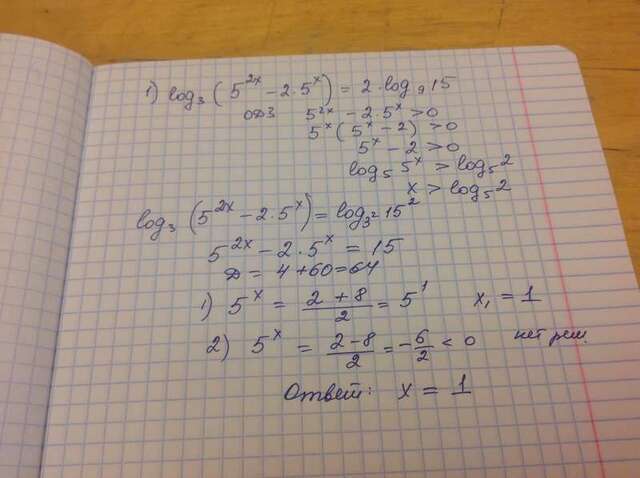 1) log₃ (5²ˣ – 2·5ˣ) = 2·log₉ 15
ОДЗ 5²ˣ – 2·5ˣ > 0
5ˣ (5ˣ – 2) > 0
5ˣ – 2 > 0
log₅ 5ˣ > log₅ 2
x > log₅ 2
log₃ (5²ˣ – 2·5ˣ) = log₃² 15²
5²ˣ – 2·5ˣ = 15
D = 4 + 60 = 64
1) 5ˣ = (2 + 8)/2 = 5¹ x₁ = 1
2) 5ˣ = (2 – 8)/2 = –6/2 < 0 нет реш.
Ответ: x = 1